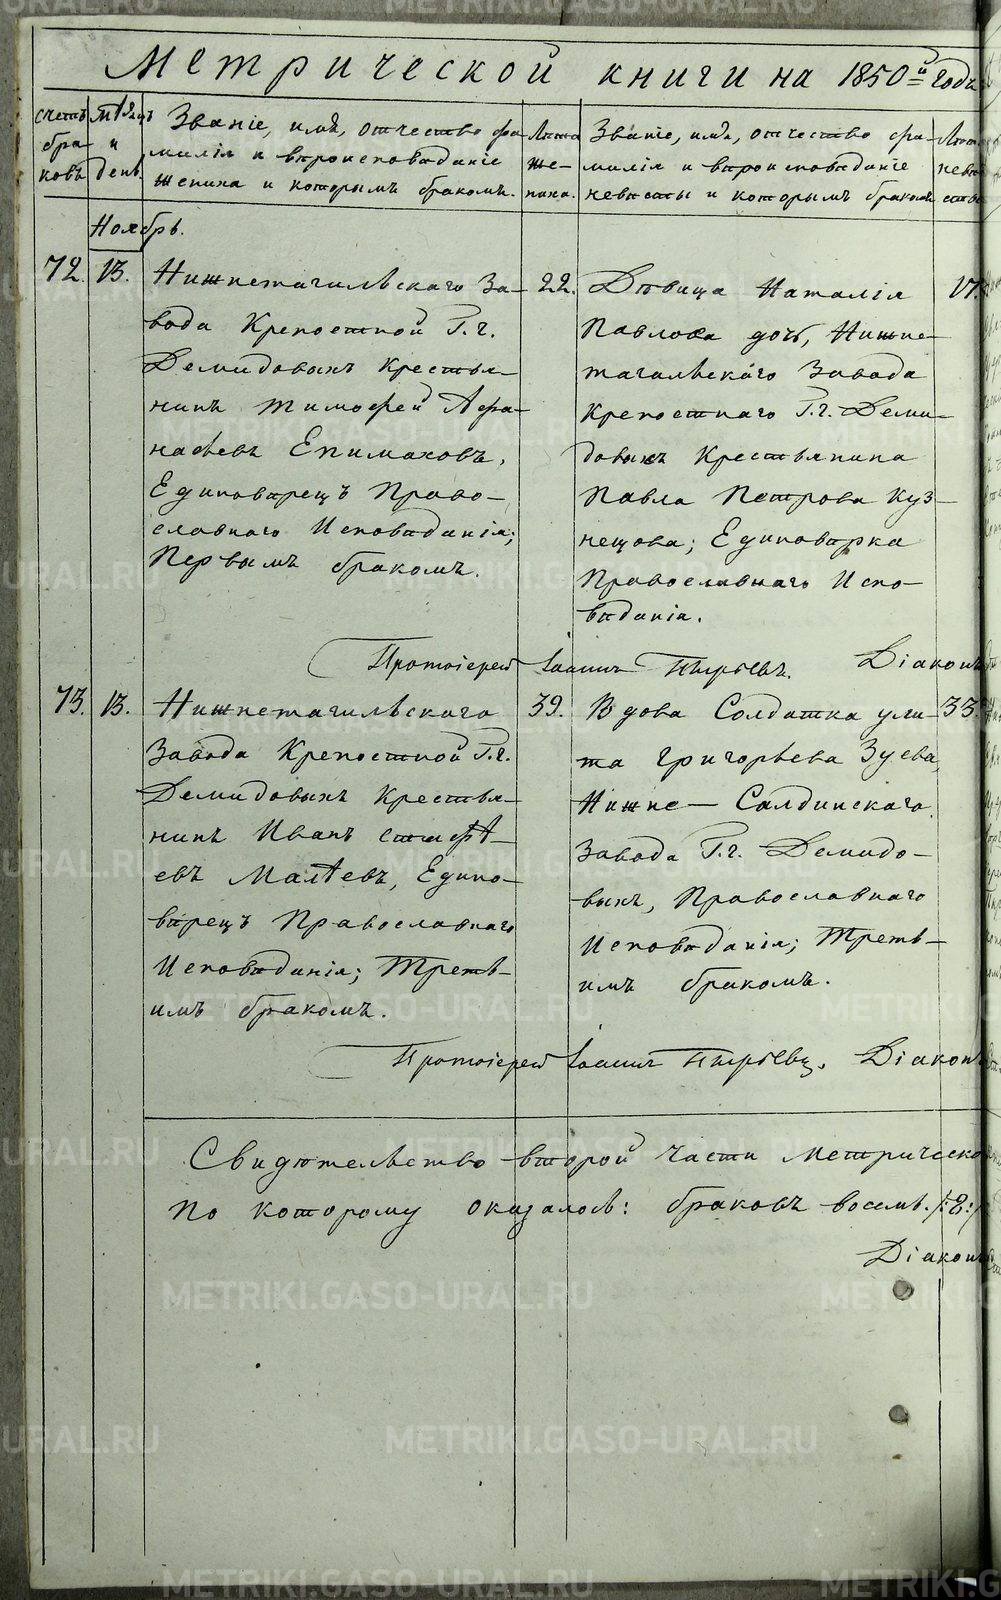 Метрической книги на 1850й годъ
счетъ бра- ковъ
Мѣсяцъ и день.
Званіе, имя, отчество фа-
милія и вѣроисповѣданіе
жениха и которымъ бракомъ.
Лѣта же- ниха.
Званіе, имя, отчество фа-
милія и вѣроисповѣданіе
невѣсты и которымъ бракомъ
Лѣта невѣ- сты
Ноябрь.
72. 13.
Нижнетагильскаго За-
вода Крепостной Г.г.
Демидовыхъ крестья-
нинъ Тимофей Афа-
насьевъ Епимаховъ,
Единовѣрецъ Право-
славнаго Исповѣданія;
Первымъ бракомъ.
22.
Дѣвица Наталія
Павлова дочь, Нижне-
тагильскаго Завода
Крепостнаго Г.г. Деми-
довыхъ Крестьянина
Павла Петрова Куз-
нецова; Единовѣрка
Православнаго Испо-
вѣданія.
17.
Протоіерей Іоаннъ Пырьевъ. Діаконъ
73. 13.
Нижнетагильскаго
Завода Крепостной Г.г.
Демидовыхъ Крестья-
нинъ Иванъ
евъ Малѣевъ, Едино-
вѣрецъ Православнаго
Исповѣданія; Треть-
имъ бракомъ.
39.
Вдова Солдатка ули-
та Григорьева Зуева,
Нижне-Салдинскаго
Завода Г.г. Демидо-
выхъ, Православнаго
Исповѣданія; Треть-
имъ бракомъ.
33.
Протоіерей Іоаннъ Пырьевъ. Діаконъ
Свидѣтельство второй части метрической
по которому оказалось: браковъ восемь. /:8:/
Діаконъ
METRIKI.GASO-URAL.RU